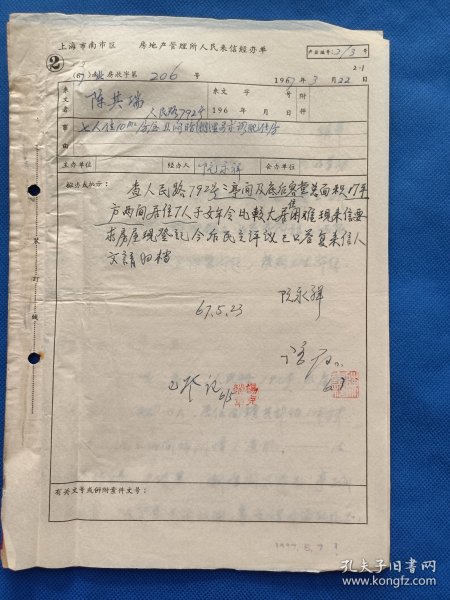 上海市南市区 房地产管理所人民来信经办单
产业编号: 2/3 号
2
2-1
(67) 房收字第 206 号
1967年3月22日
来文者
陈其瑞
人民路792号
来文 字 号
196 年 月 日 附 件
事由
七人住10m²
主办单位
经办人
阮永祥
会办单位
拟办或批示:
查人民路792号三亭间及底后客堂总面积17平
方两间居住7人子女年令比较大居住困难现来信要
求房屋现登记今后民主评议已口答复来信人
文请归档
67.5.23
阮永祥
有关文号或併附案件文号:
装 订 线
孔夫子旧书网
www.kongfz.com